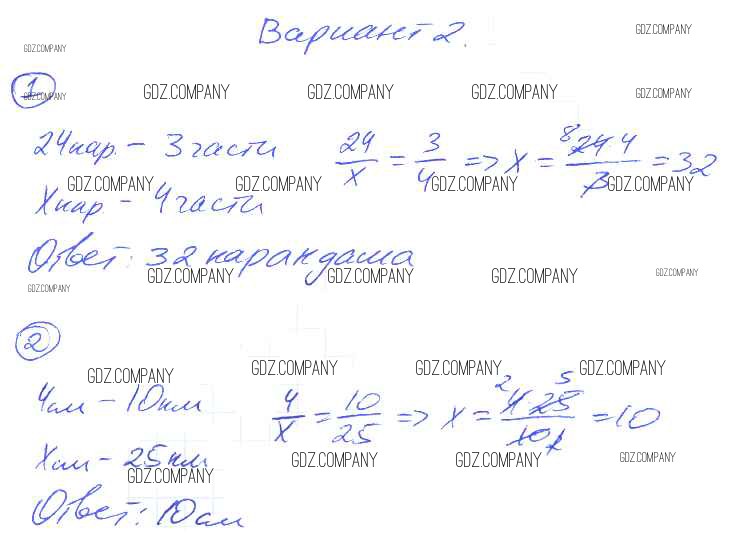 Вариант 2.
GDZ.COMPANY GDZ.COMPANY
1
GDZ.COMPANY GDZ.COMPANY GDZ.COMPANY GDZ.COMPANY GDZ.COMPANY
24кар. – 3 части 24/x = 3/4 => x = 8 24 4/3 = 32
GDZ.COMPANY GDZ.COMPANY GDZ.COMPANY GDZ.COMPANY
x кар – 4 части
Ответ: 32 карандаша
GDZ.COMPANY GDZ.COMPANY GDZ.COMPANY GDZ.COMPANY GDZ.COMPANY
2
GDZ.COMPANY GDZ.COMPANY GDZ.COMPANY GDZ.COMPANY
4см – 10км 4/x = 10/25 => x = 2 5 4·25/10 1 = 10
xсм – 25км
GDZ.COMPANY GDZ.COMPANY GDZ.COMPANY GDZ.COMPANY
Ответ: 10см